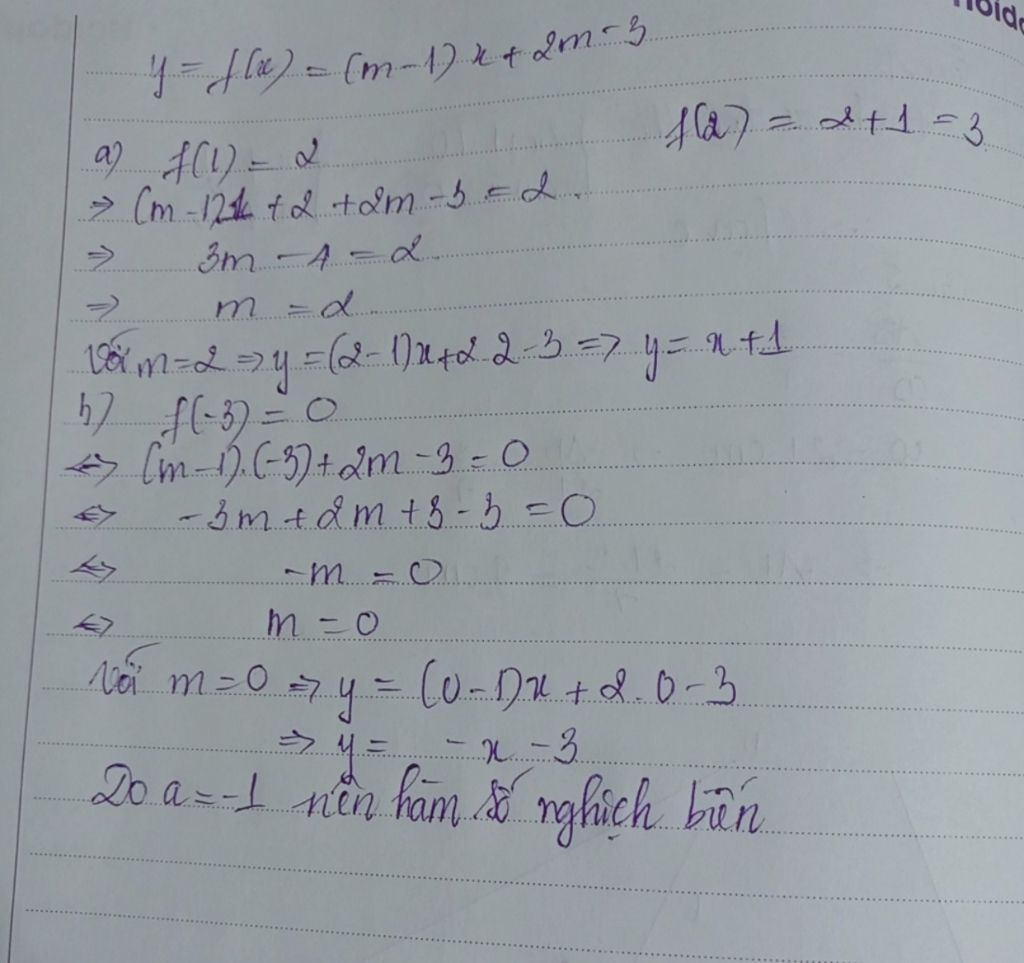 y = f(x) = (m-1)x + 2m-3
f(2) = 2+1 = 3
a) f(1) = 2
⇒ (m-1).1 + 2 + 2m - 3 = 2.
⇒ 3m - 4 = 2
⇒ m = 2
Với m=2 ⇒ y = (2-1)x+2.2-3 ⇒ y = x+1
b) f(-3) = 0
⇔ (m-1).(-3)+2m-3=0
⇔ -3m+2m+3-3=0
⇔ -m = 0
⇔ m = 0
Với m=0 ⇒ y = (0-1)x + 2.0-3
⇒ y = -x-3
Do a=-1 nên hàm số nghịch biến